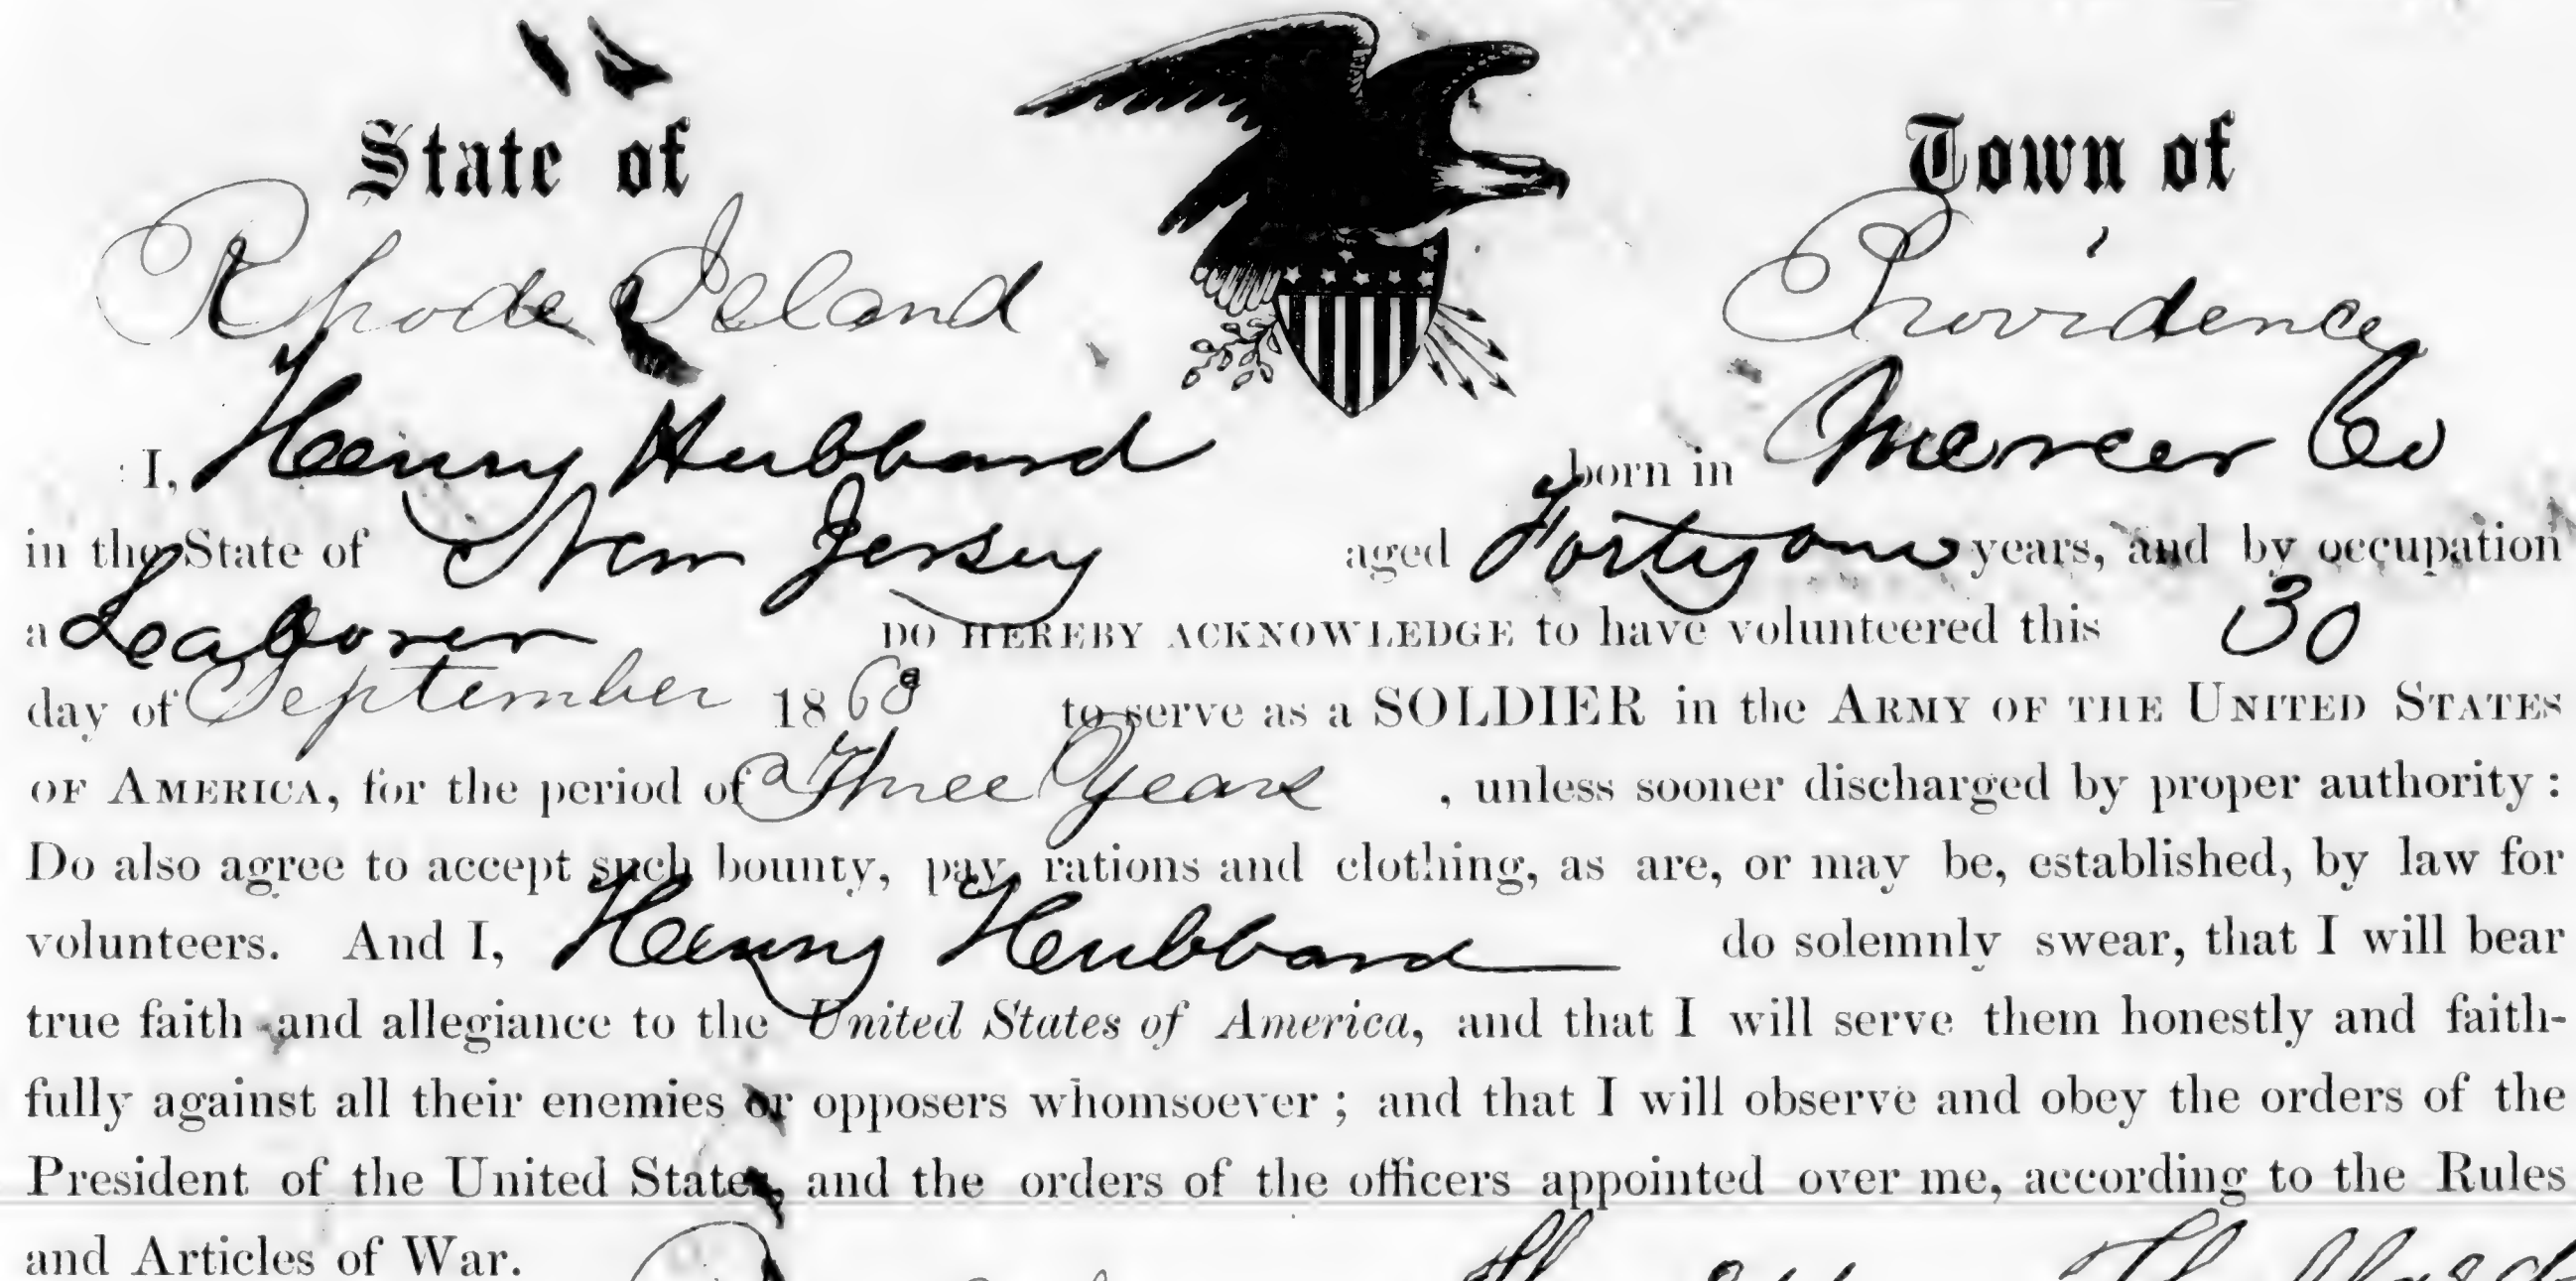 State of Town of
Rhode Island Providence
I, Henry Hubbard born in Mercer Co
in the State of New Jersey aged Forty one years, and by occupation
a Laborer DO HEREBY ACKNOWLEDGE to have volunteered this 30
day of September 186 to serve as a SOLDIER in the ARMY OF THE UNITED STATES
OF AMERICA, for the period of Three Years , unless sooner discharged by proper authority :
Do also agree to accept such bounty, pay, rations and clothing, as are, or may be, established, by law for
volunteers. And I, Henry Hubbard do solemnly swear, that I will bear
true faith and allegiance to the United States of America, and that I will serve them honestly and faith-
fully against all their enemies or opposers whomsoever ; and that I will observe and obey the orders of the
President of the United States, and the orders of the officers appointed over me, according to the Rules
and Articles of War.